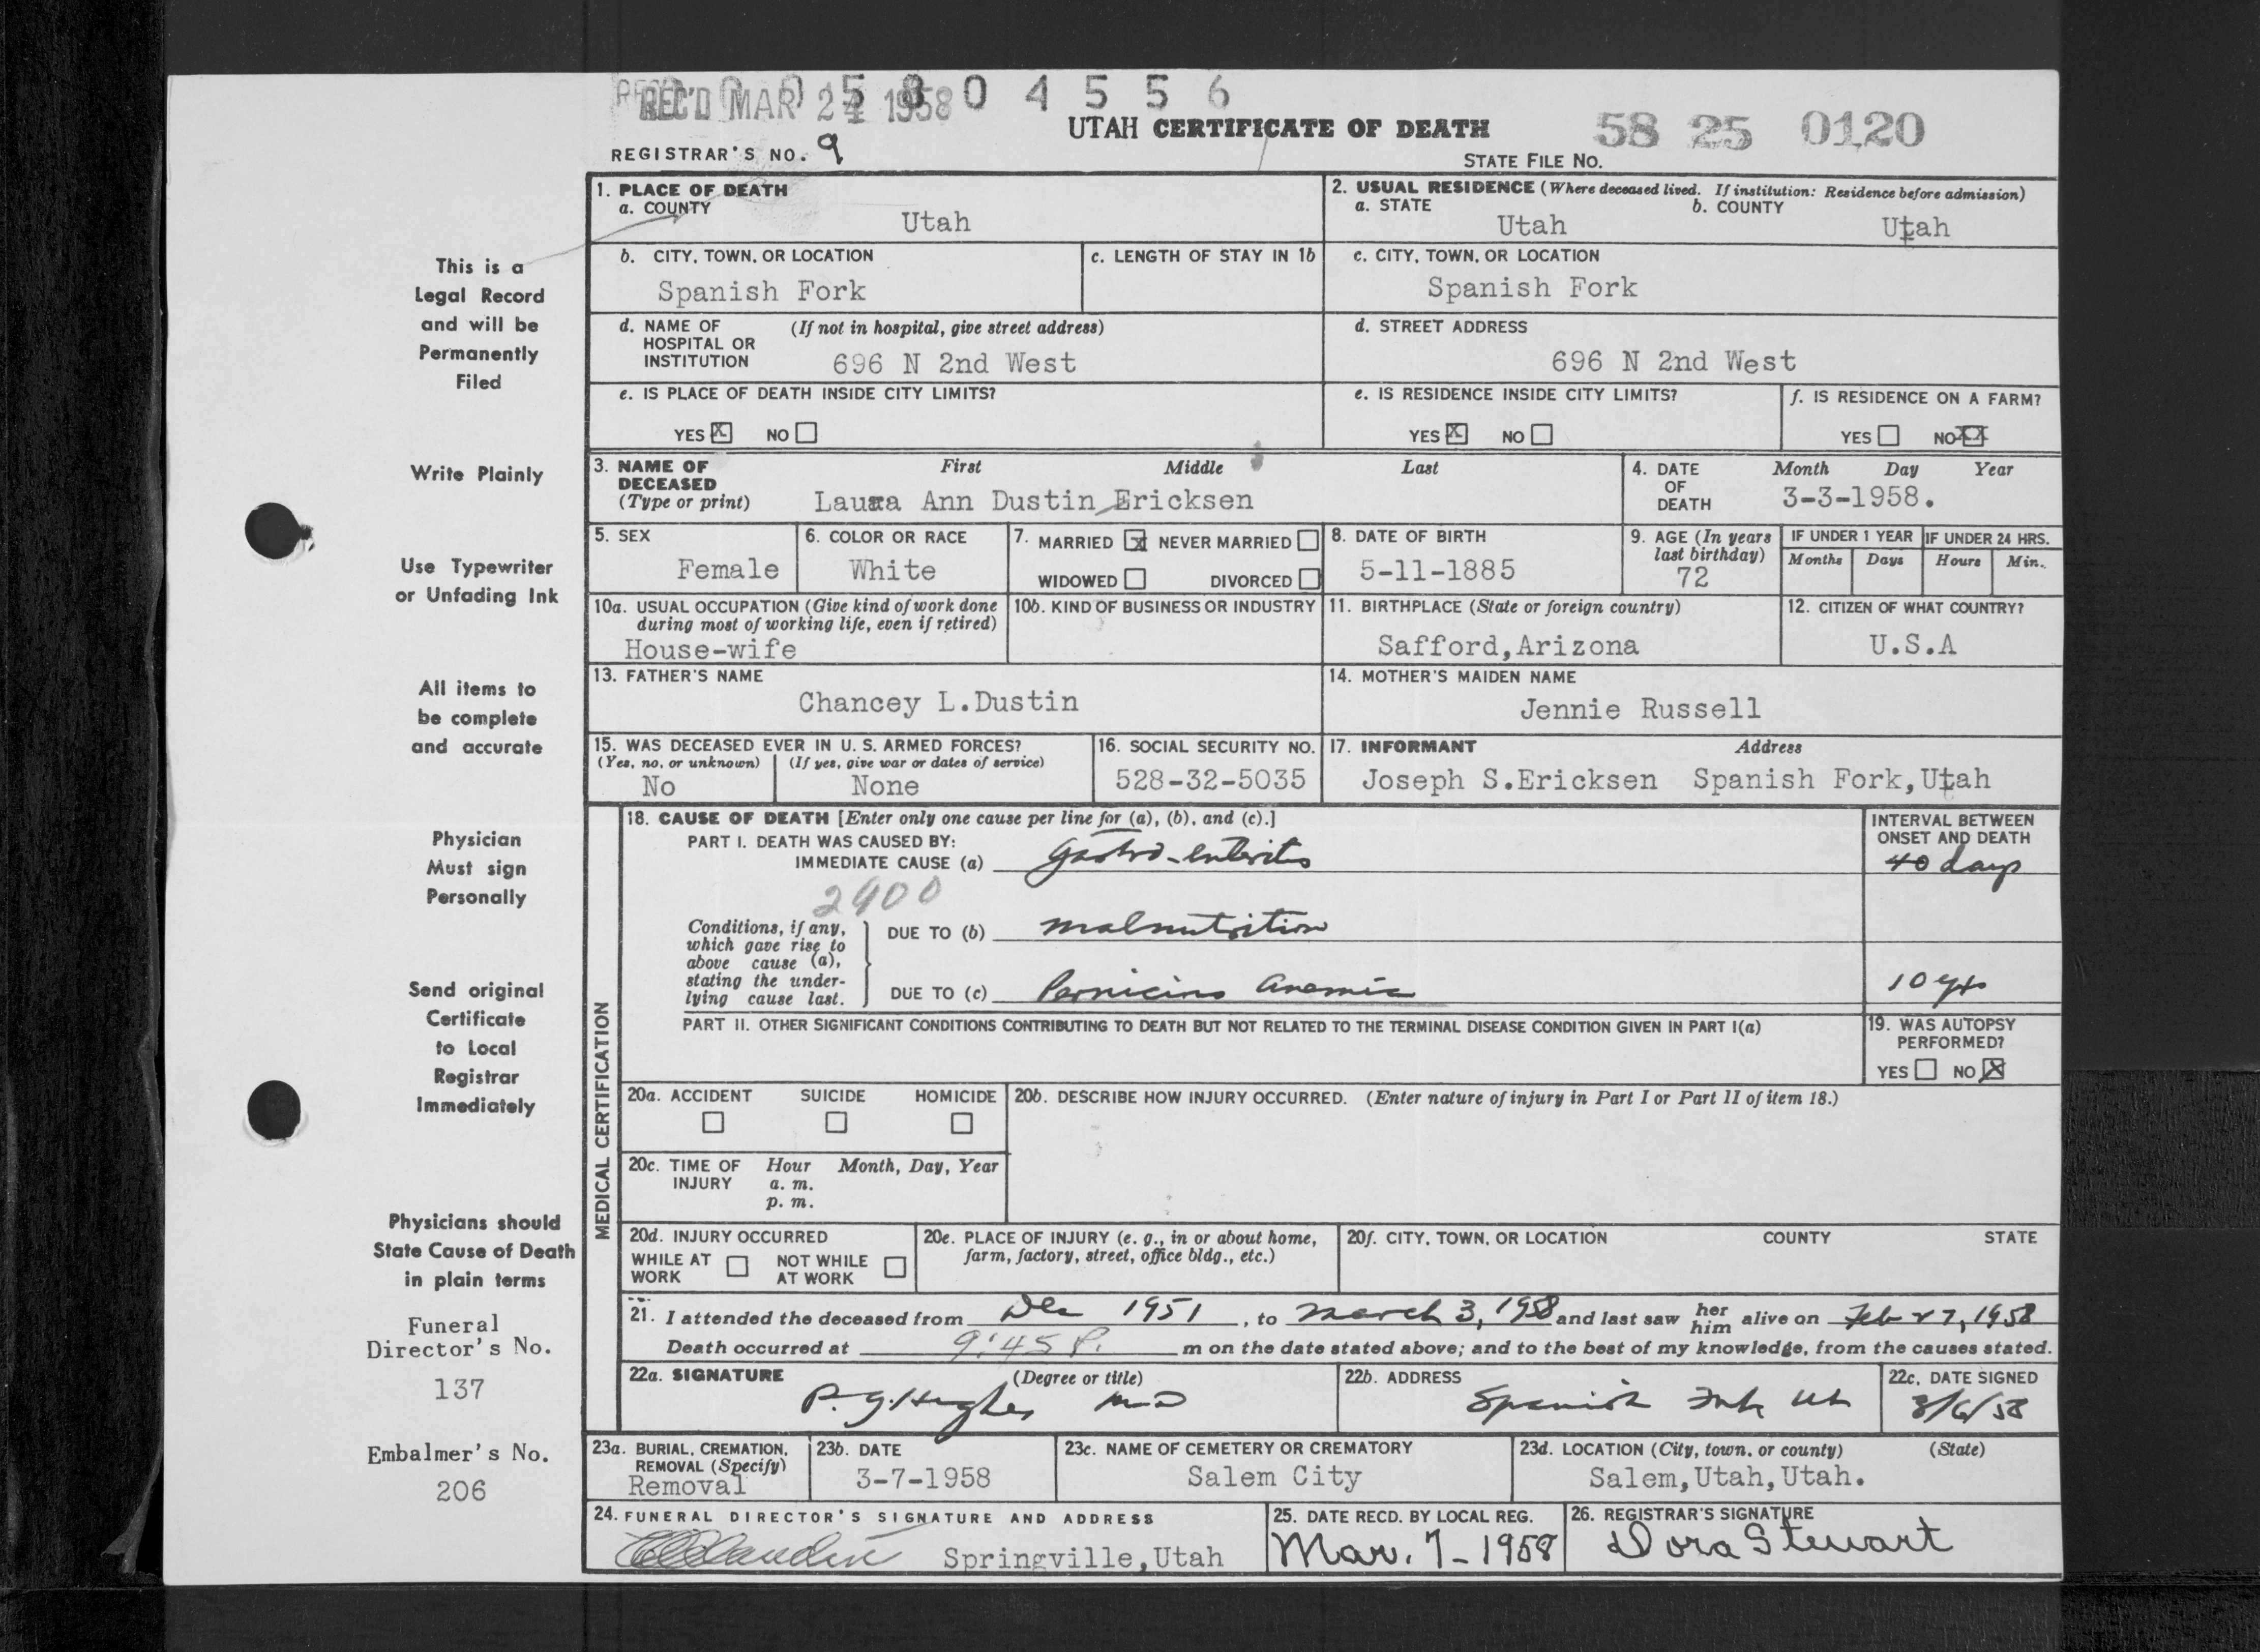 REC'D MAR 24 1958
5 8 0 4 5 5 6
UTAH CERTIFICATE OF DEATH
58 25 0120
REGISTRAR'S NO. 9
STATE FILE NO.
This is a
Legal Record
and will be
Permanently
Filed
Write Plainly
Use Typewriter
or Unfading Ink
All items to
be complete
and accurate
Physician
Must sign
Personally
Send original
Certificate
to Local
Registrar
Immediately
Physicians should
State Cause of Death
in plain terms
Funeral
Director's No.
137
Embalmer's No.
206
1. PLACE OF DEATH
a. COUNTY
Utah
2. USUAL RESIDENCE (Where deceased lived. If institution: Residence before admission)
a. STATE
Utah
b. COUNTY
Utah
b. CITY, TOWN, OR LOCATION
Spanish Fork
c. LENGTH OF STAY IN 1b
c. CITY, TOWN, OR LOCATION
Spanish Fork
d. NAME OF HOSPITAL OR INSTITUTION
(If not in hospital, give street address)
696 N 2nd West
d. STREET ADDRESS
696 N 2nd West
e. IS PLACE OF DEATH INSIDE CITY LIMITS?
YES X NO
e. IS RESIDENCE INSIDE CITY LIMITS?
YES X NO
f. IS RESIDENCE ON A FARM?
YES NO XX
3. NAME OF DECEASED
(Type or print)
First Middle Last
Laura Ann Dustin Ericksen
4. DATE OF DEATH
Month Day Year
3-3-1958.
5. SEX
Female
6. COLOR OR RACE
White
7. MARRIED X NEVER MARRIED
WIDOWED DIVORCED
8. DATE OF BIRTH
5-11-1885
9. AGE (In years
last birthday)
72
IF UNDER 1 YEAR
Months Days
IF UNDER 24 HRS.
Hours Min.
10a. USUAL OCCUPATION (Give kind of work done
during most of working life, even if retired)
House-wife
10b. KIND OF BUSINESS OR INDUSTRY
11. BIRTHPLACE (State or foreign country)
Safford,Arizona
12. CITIZEN OF WHAT COUNTRY?
U.S.A
13. FATHER'S NAME
Chancey L.Dustin
14. MOTHER'S MAIDEN NAME
Jennie Russell
15. WAS DECEASED EVER IN U. S. ARMED FORCES?
(Yes, no, or unknown) (If yes, give war or dates of service)
No None
16. SOCIAL SECURITY NO.
528-32-5035
17. INFORMANT Address
Joseph S.Ericksen Spanish Fork,Utah
MEDICAL CERTIFICATION
18. CAUSE OF DEATH [Enter only one cause per line for (a), (b), and (c).]
PART I. DEATH WAS CAUSED BY:
IMMEDIATE CAUSE (a) Gastro-enteritis
INTERVAL BETWEEN
ONSET AND DEATH
40 days
2900
Conditions, if any,
which gave rise to
above cause (a),
stating the under-
lying cause last.
DUE TO (b) malnutrition
DUE TO (c) Pernicious Anemia
10 yrs
PART II. OTHER SIGNIFICANT CONDITIONS CONTRIBUTING TO DEATH BUT NOT RELATED TO THE TERMINAL DISEASE CONDITION GIVEN IN PART I(a)
19. WAS AUTOPSY
PERFORMED?
YES NO X
20a. ACCIDENT SUICIDE HOMICIDE
20b. DESCRIBE HOW INJURY OCCURRED. (Enter nature of injury in Part I or Part II of item 18.)
20c. TIME OF INJURY
Hour Month, Day, Year
a. m.
p. m.
20d. INJURY OCCURRED
WHILE AT WORK NOT WHILE AT WORK
20e. PLACE OF INJURY (e. g., in or about home,
farm, factory, street, office bldg., etc.)
20f. CITY, TOWN, OR LOCATION COUNTY STATE
21. I attended the deceased from Dec 1951, to March 3, 1958 and last saw her him alive on Feb 27, 1958
Death occurred at 9:45 P. m on the date stated above; and to the best of my knowledge, from the causes stated.
22a. SIGNATURE (Degree or title)
P. G. Hughes MD
22b. ADDRESS
Spanish Fork Ut
22c. DATE SIGNED
3/6/58
23a. BURIAL, CREMATION,
REMOVAL (Specify)
Removal
23b. DATE
3-7-1958
23c. NAME OF CEMETERY OR CREMATORY
Salem City
23d. LOCATION (City, town, or county) (State)
Salem,Utah,Utah.
24. FUNERAL DIRECTOR'S SIGNATURE AND ADDRESS
Springville,Utah
25. DATE RECD. BY LOCAL REG.
Mar. 7-1958
26. REGISTRAR'S SIGNATURE
Dora Stewart